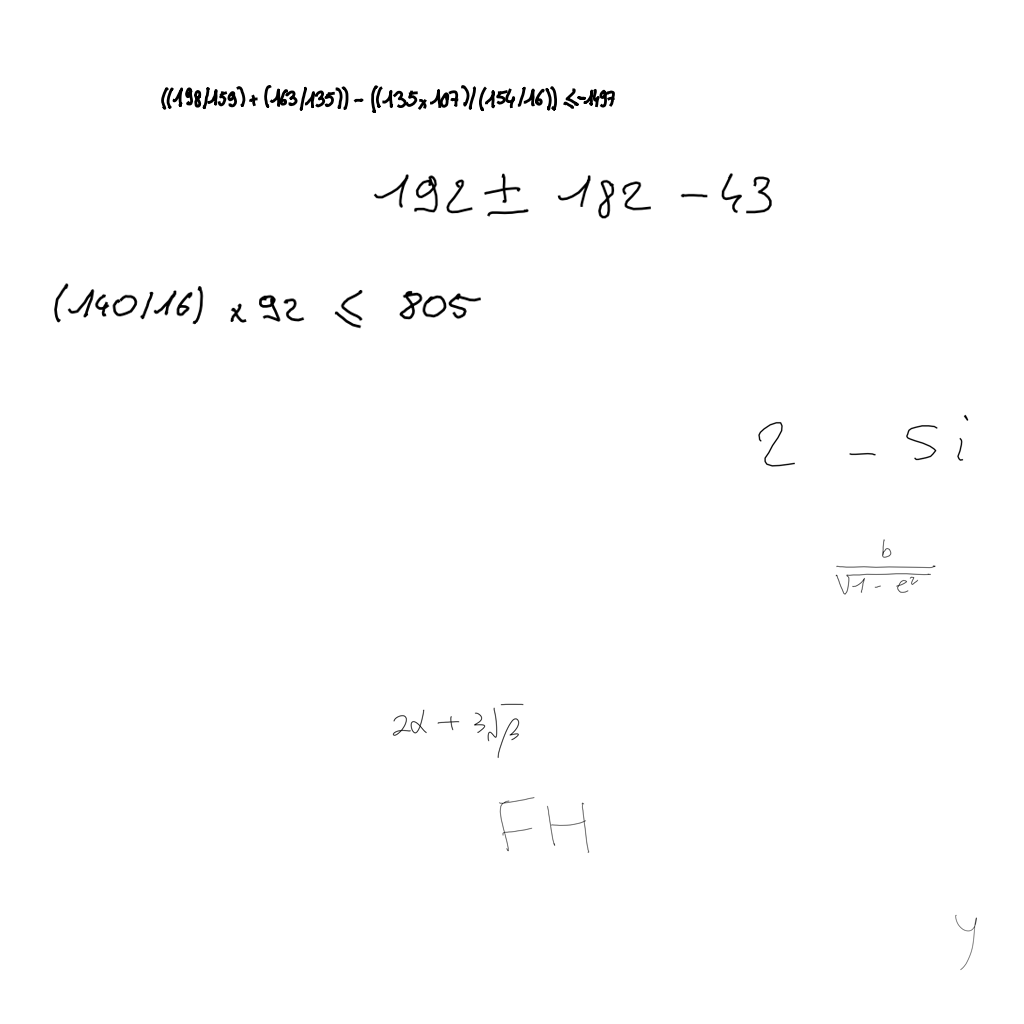 ((198/159)+(163/135))-((135x107)/(154/16)) ≤-1497
192 ± 182 - 43
(140/16) x 92 ≤ 805
2 - 5i
b/√1-e²
2α + 3√β
FH
y